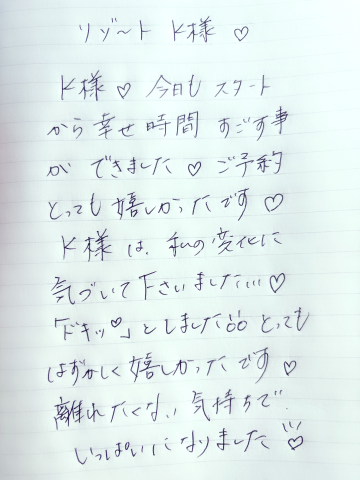 リゾート K様 ♡
K様 ♡ 今日も スタート
から 幸せ 時間 すごす事
が できました ♡ ご予約
とっても 嬉しかったです ♡
K様 は、私の 変化に
気づいて 下さいました... ♡
「ドキッ♡」としました とっても
はずかしく 嬉しかったです ♡
離れたくない 気持ちで
いっぱいになりました ♡